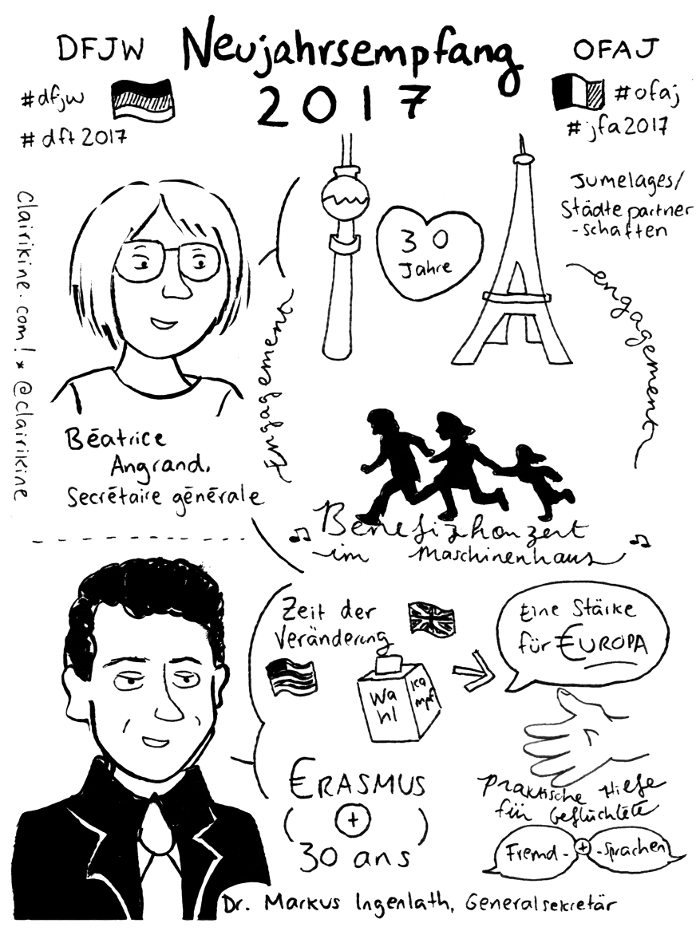 DFJW
Neujahrsempfang
2017
OFAJ
#dfjw
#dft2017
#ofaj
#jfa2017
Jumelages/
Städtepartner
-schaften
30
Jahre
Engagement
engagement
clairikine.com! * @clairikine
Béatrice
Angrand,
Secrétaire générale
Benefizkonzert
im Maschinenhaus
Zeit der
Veränderung
Wa
hl
ka
mpf
Eine Stärke
für EUROPA
ERASMUS
(+)
30 ans
Praktische Hilfe
für Geflüchtete
Fremd- + -sprachen
Dr. Markus Ingenlath, Generalsekretär